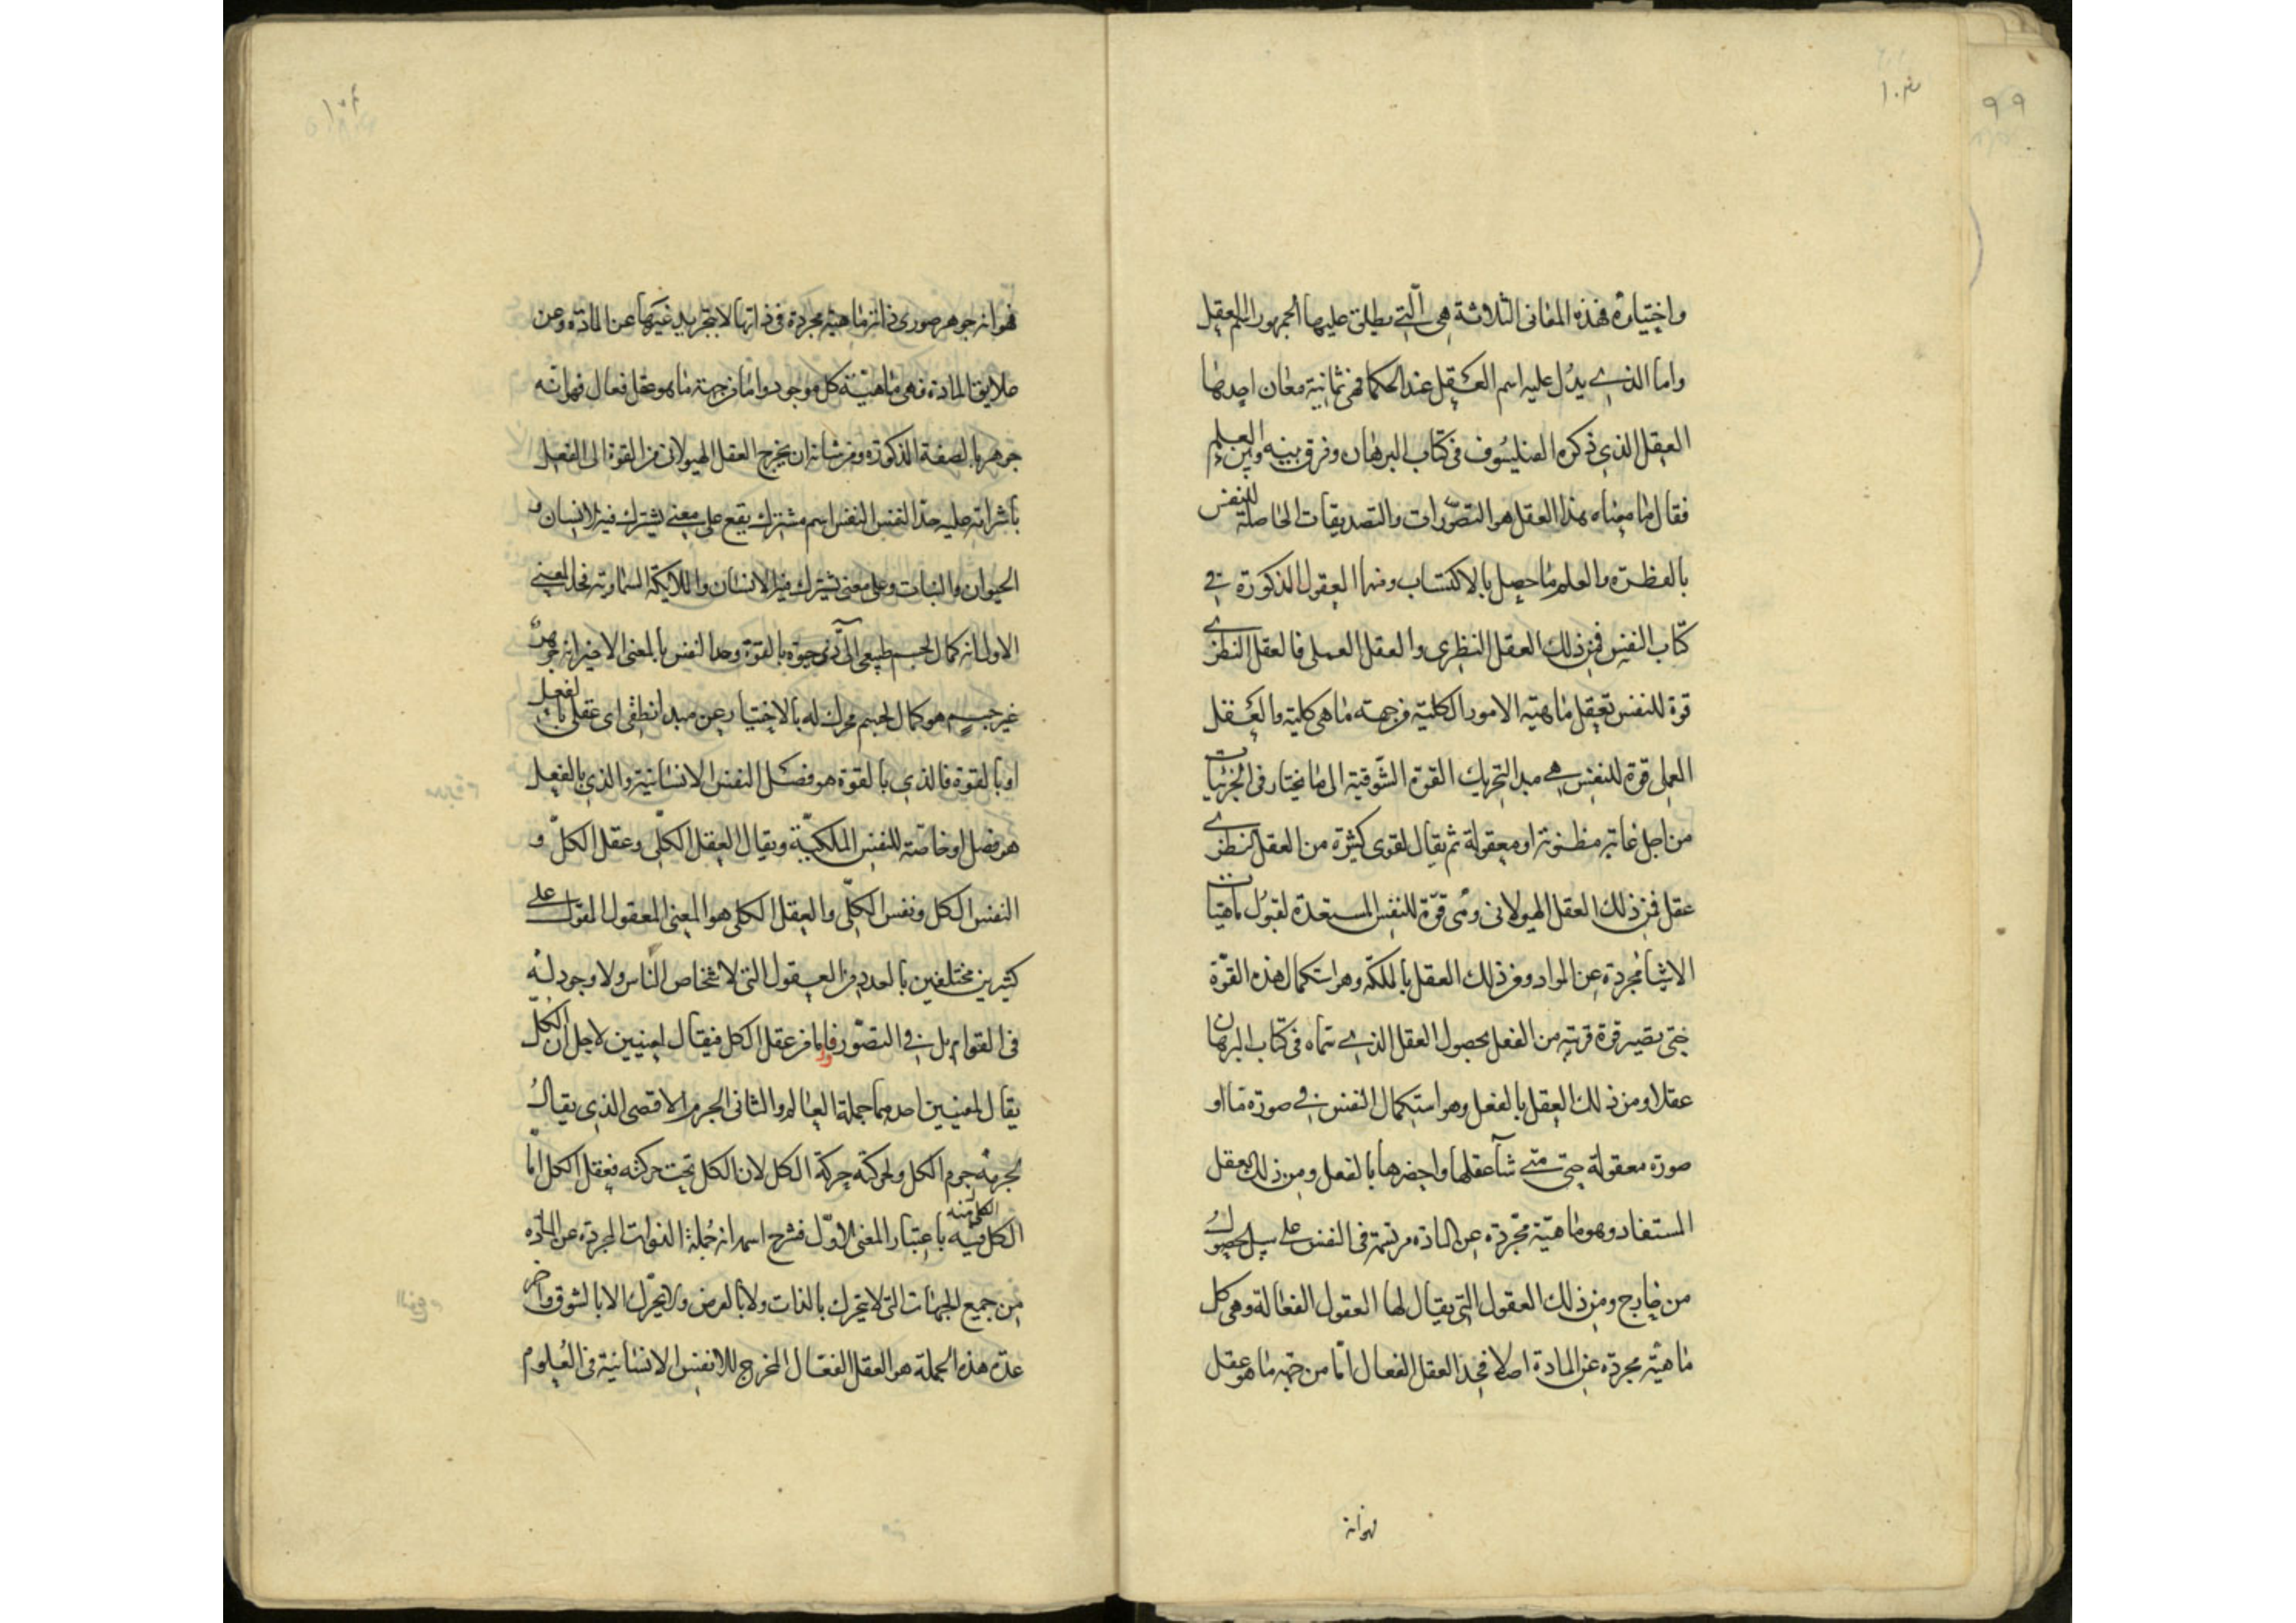 واختياره فهذه المعانى الثلاثة هى الّتي يطلق عليها الجمهور اسم العقل
واما الذي يدل عليه اسم العقل عند الحكما فهى ثمانية معان احدها
العقل الذي ذكره الفيلسوف فى كتاب البرهان وفرق بينه وبين العلم
فقال ما معناه هذا العقل هو التصورات والتصديقات الحاصلة للنفس
بالفطرة والعلم ما حصل بالاكتساب ومنها العقول المذكورة في
كتاب النفس فمن ذلك العقل النظرى والعقل العملى فالعقل النظرى
قوة للنفس تعقل ماهية الامور الكلية من جهة ما هى كلية والعقل
العملى قوة للنفس هي مبدا لتحريك القوة الشّوقية الى ما يختار فى الجزئيات
من اجل غاية مظنونة او معقولة ثم يقال لقوى كثيرة من العقل النظرى
عقل فمن ذلك العقل الهيولانى وهى قوّة للنفس المستعدة لقبول ماهيات
الاشيا مجردة عن المواد ومن ذلك العقل بالملكة وهو استكمال هذه القوّة
حتى تصير قوة قريبة من الفعل بحصول العقل الذي سماه فى كتاب البرهان
عقلا ومن ذلك العقل بالفعل وهو استكمال النفس في صورة ما او
صورة معقولة حتى متي شآ عقلها واحضرها بالفعل ومن ذلك العقل
المستفاد وهو ماهيّة مجّردة عن المادة مرتسمة فى النفس على سبيل الحصول
من خارج ومن ذلك العقول التى يقال لها العقول الفعالة وهى كل
ماهية مجردة عن المادة اصلا فحد العقل الفعال امّا من جهة ما هو عقل
فهو انه
فهو انه جوهر صورى ذاته ماهية مجردة فى ذاتها لا بتجريد غيرها عن المادة وعن
علايق المادة فهى ماهيّة كل موجود واما من جهة ما هو عقل فعال فهو انّه
جوهر بالصفة المذكورة ومن شانه ان يخرج العقل الهيولانى من القوة الى الفعل
باشراقه عليه حد النفس النفس اسم مشترك يقع على معنى يشترك فيه الانسان و
الحيوان والنبات وعلى معنى يشترك فيه الانسان والملايكة السماوية فحد المعنى
الاول انه كمال لجسم طبيعى آلى ذى حيوة بالقوة وحد النفس بالمعنى الاخر انه جوهر
غير جسم هو كمال لجسم محرك له بالاختيار عن مبدا نطقى اى عقلى بالفعل
او بالقوة فالذي بالقوة هو فصل النفس الانسانية والذى بالفعل
هو فصل او خاصّة للنفس الملكيّة ويقال العقل الكلّى وعقل الكلّ و
النفس الكل ونفس الكلّى والعقل الكلى هو المعنى المعقول المقول على
كثيرين مختلفين بالعدد من العقول التى لاشخاص الناس ولا وجود له
فى القوام بل في التصّور فاما من عقل الكل فيقال لمعنيين لاجل ان الكل
يقال لمعنيين احدهما جملة العالم والثانى الجرم الاقصى الذى يقال
لجرمه جرم الكل ولحركته حركة الكل لان الكل تحت حركته فعقل الكل امّا
الكل فيه باعتبار المعنى الاوّل فشرح اسمه انه جملة الذوات المجردة عن المادّة
من جميع الجهات التى لا يتحرك بالذات ولا بالعرض ولا يتحّرك الا بالشوق واخر
عدّة هذه الجملة هو العقل الفعّال المخرج للانفس الانسانية فى العلوم